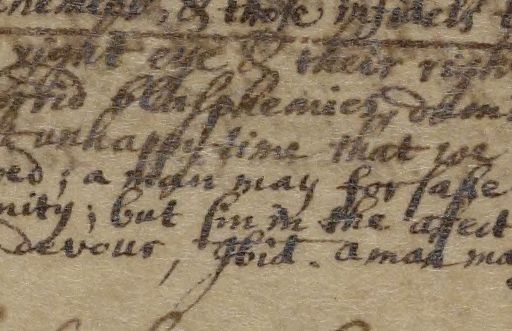 & those infidels
right eye & their right
blasphemies, & damn
unhappy time that we
; a man may forsake
nity; but sin in the afect
devour, ibid. a man ma